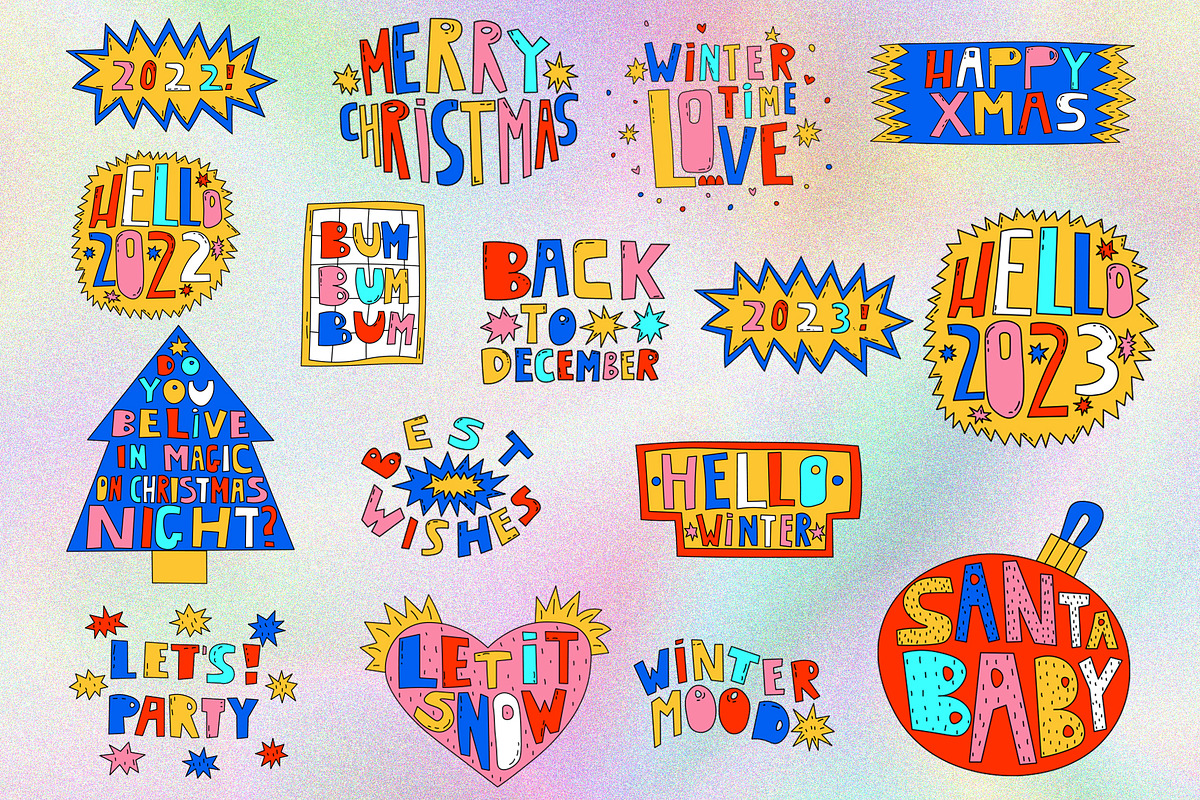 2022!
MERRY
CHRiSTMAS
WiNTER
TiME
LOVE
HAPPY
XMAS
HELLO
2022
BUM
BUM
BUM
BACK
TO
DECEMBER
2023!
HELLO
2023
DO
YOU
BELiVE
IN MAGIC
ON CHRISTMAS
NIGHT?
BEST
WISHES
HELLO
WiNTER
SANTA
BABY
LET'S!
PARTY
LET iT
SNOW
WiNTER
MOOD